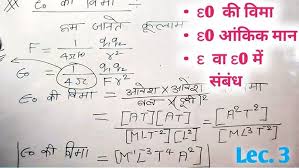 ε0 की विमा :
हम जानते कूलाम
F = 1/4πε0 q₁q₂/r²
ε0 = 1/4π q₁q₂/Fr²
ε0 की विमा = आवेश × आवेश / बल × (दूरी)²
= [AT][AT] / [MLT⁻²][L²] = [A²T²] / [ML³T⁻²]
ε0 की विमा = [M⁻¹L⁻³T⁴A²]
• ε0 की विमा
• ε0 आंकिक मान
• ε वा ε0 में
संबंध
Lec. 3